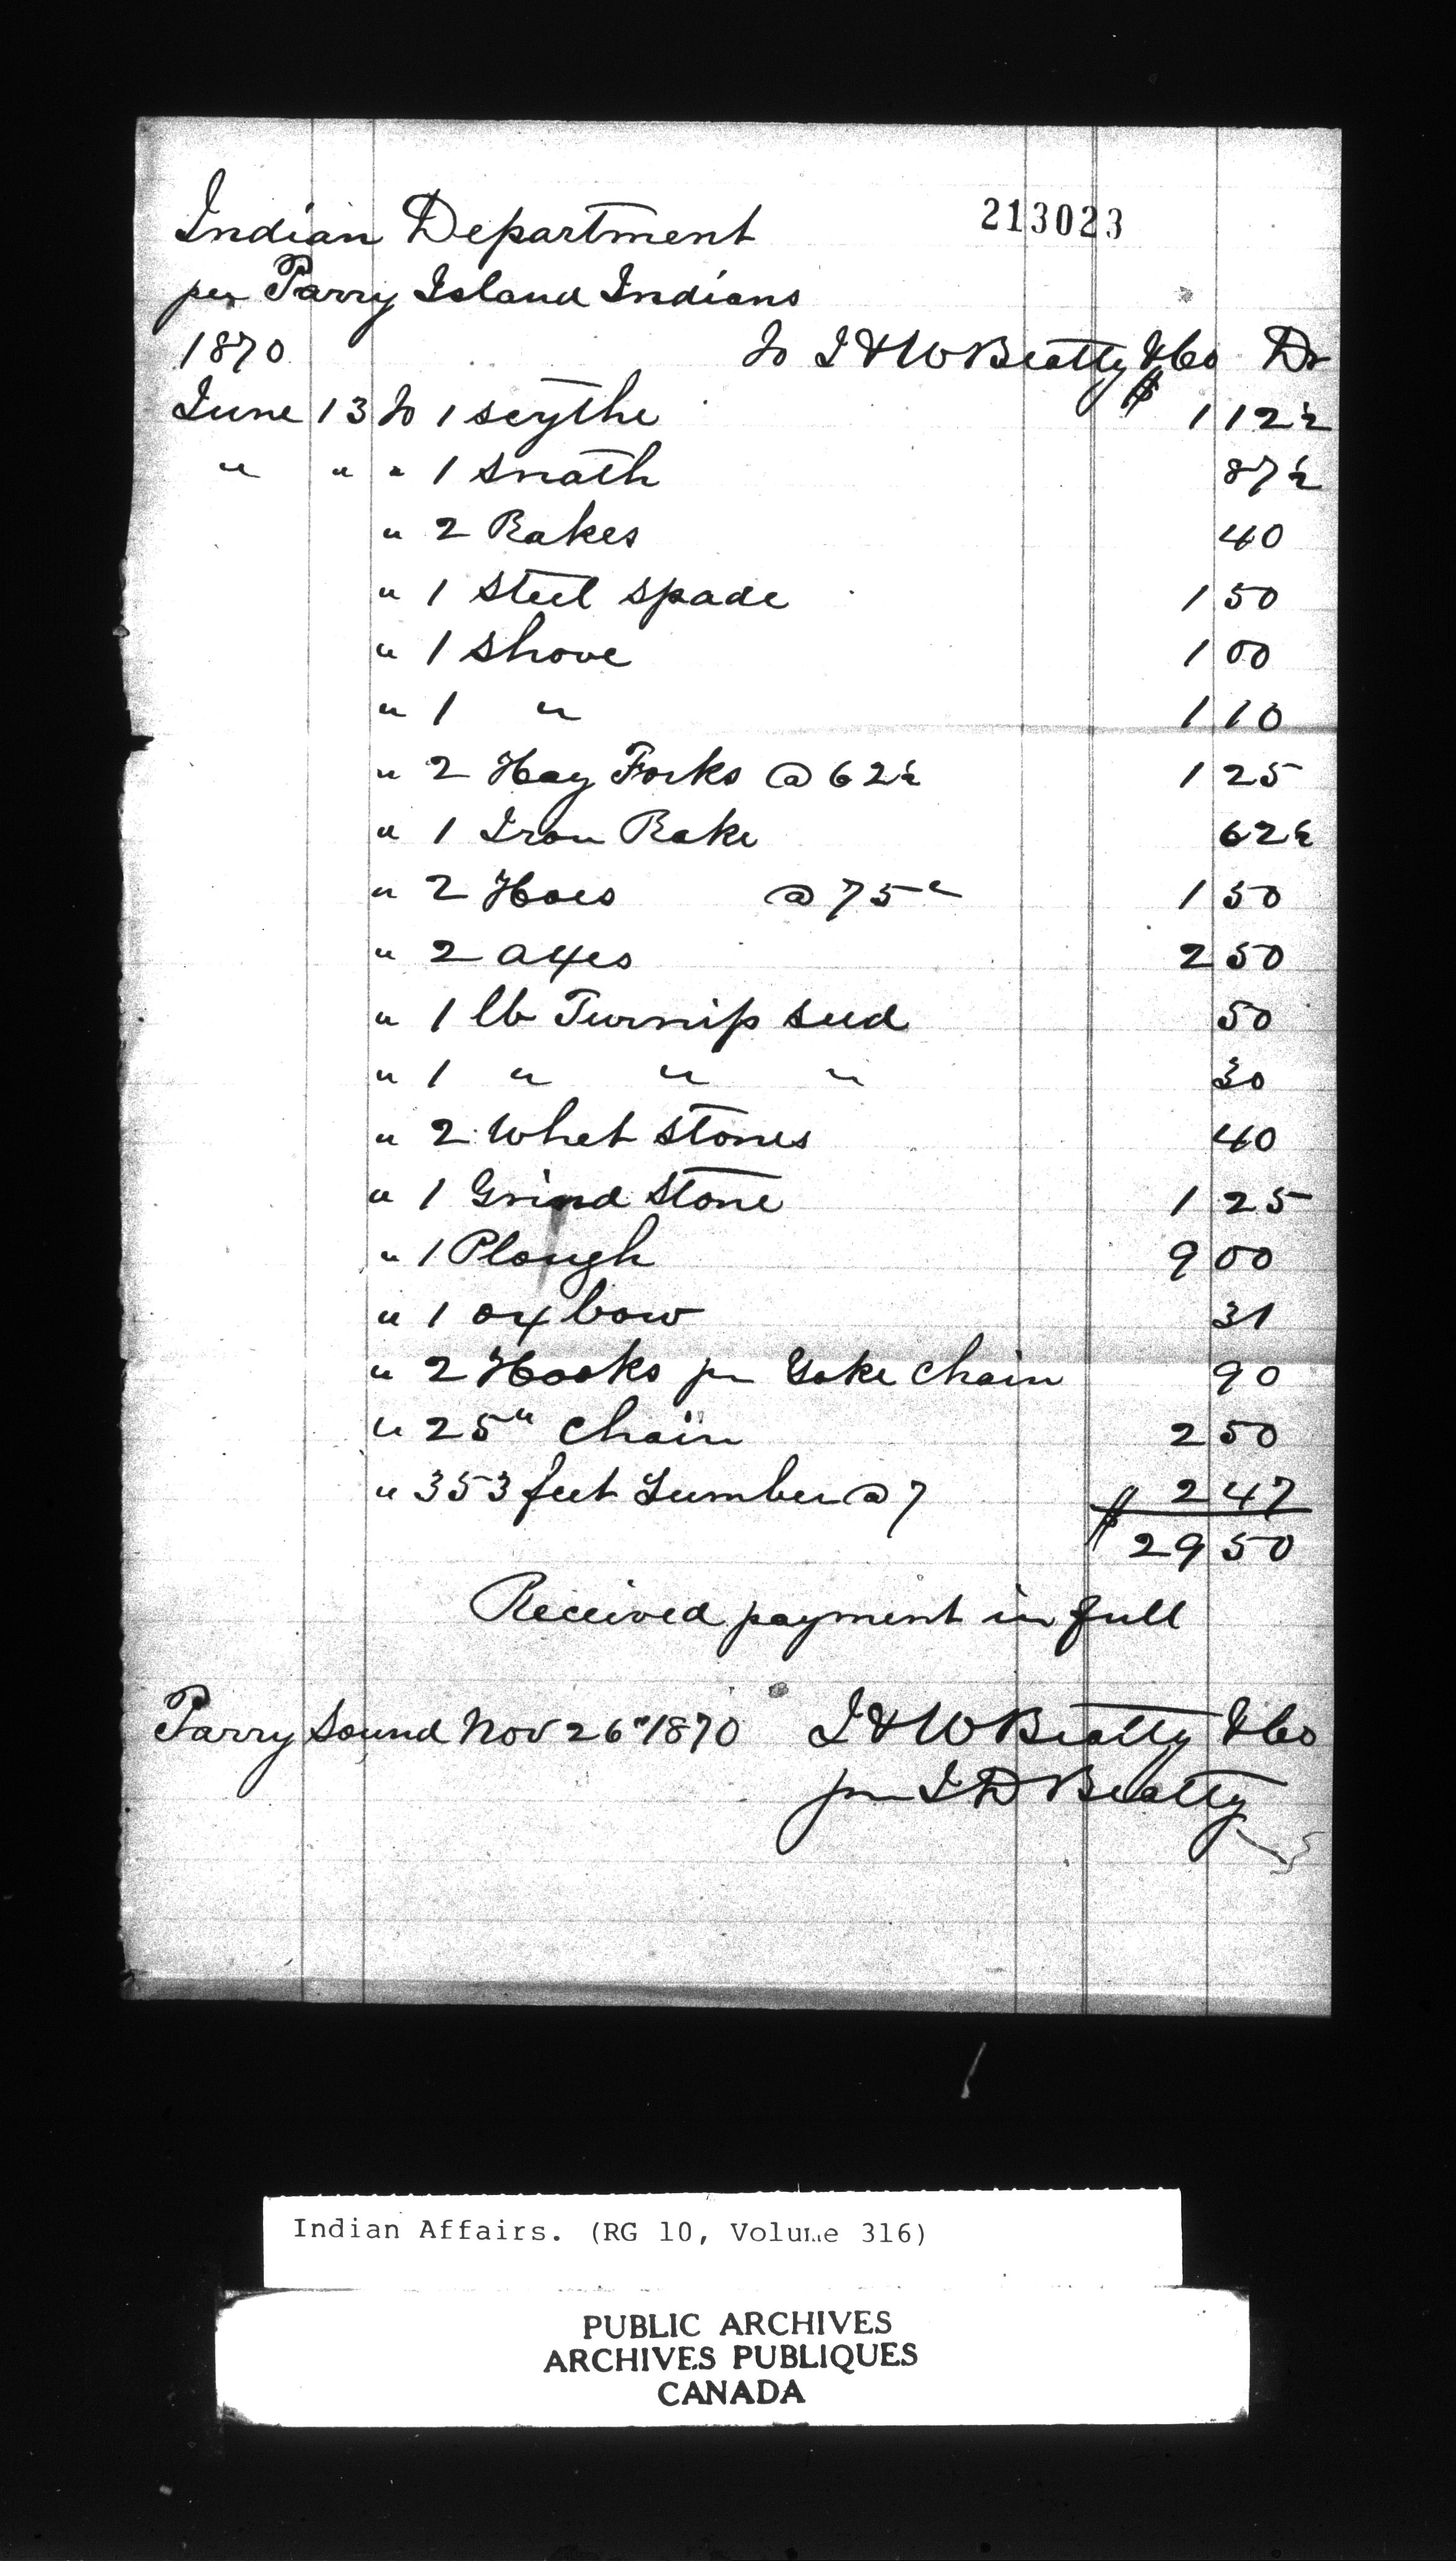 213023
Indian Department
per Parry Island Indians
1870 To J & W Beatty & Co Dr
June 13 To 1 scythe $ 1 12½
" " " 1 snath 87½
" 2 Rakes 40
" 1 Steel spade 1 50
" 1 shove 1 00
" 1 " 1 10
" 2 Hay Forks @ 62½ 1 25
" 1 Iron Rake 62½
" 2 Hoes @ 75c 1 50
" 2 axes 2 50
" 1 lb Turnip seed 50
" 1 " " " 30
" 2 Whet stones 40
" 1 Grind Stone 1 25
" 1 Plough 9 00
" 1 ox bow 31
" 2 Hooks pr Yoke chain 90
" 25" chain 2 50
" 353 feet Lumber @ 7 2 47
$ 29 50
Received payment in full
Parry Sound Nov 26" 1870 J & W Beatty & Co
per J D Beatty
Indian Affairs. (RG 10, Volume 316)
PUBLIC ARCHIVES
ARCHIVES PUBLIQUES
CANADA